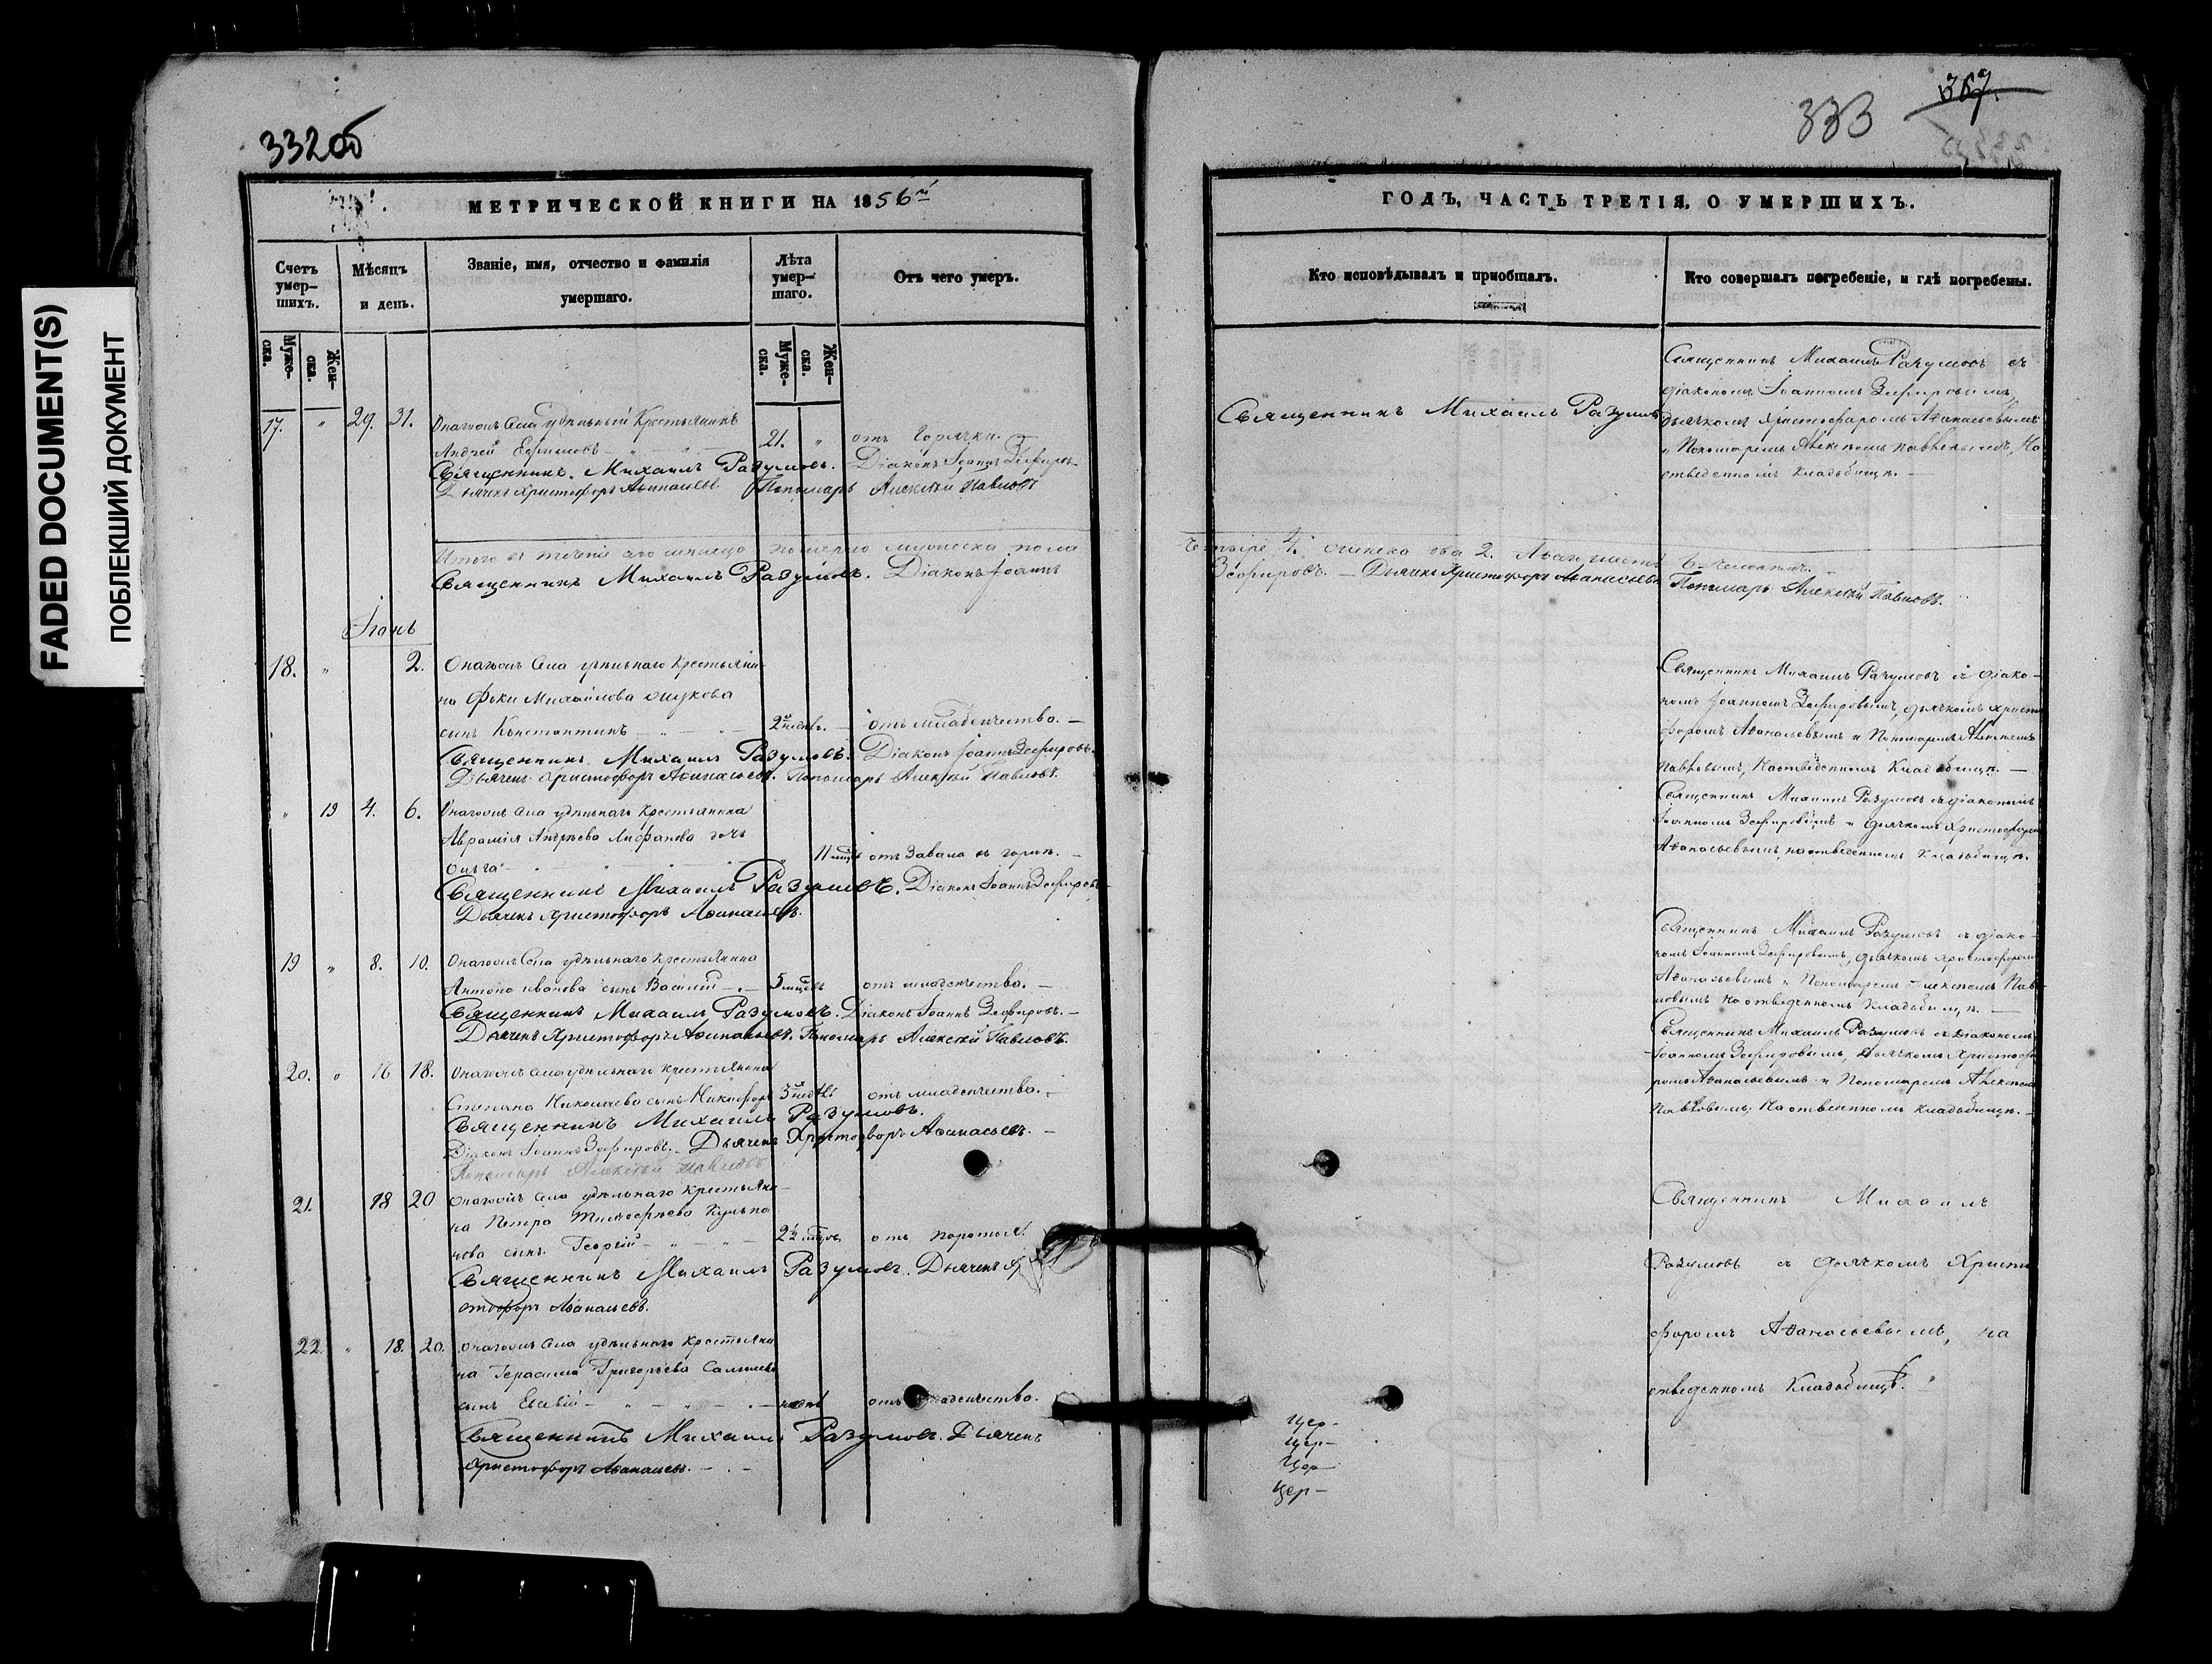 332об
МЕТРИЧЕСКОЙ КНИГИ НА 1856й
Счетъ умер-шихъ.
Мѣсяцъ и день.
Званіе, имя, отчество и фамилія умершаго.
Лѣта умер-шаго.
Отъ чего умеръ.
Муже-ска.
Жен-ска.
Муже-ска.
Жен-ска.
17. " 29. 31. Онагожъ Села удѣльный Крестьянинъ
Андрей Ефимовъ 21. " отъ Горячки.
Священникъ Михаилъ Разумовъ. Діаконъ Іоаннъ Зефировъ
Дьячекъ Христофоръ Афанасьевъ. Пономарь Алексѣй Павловъ
Итого въ теченіе сего мѣсяца померло мужеска пола
Священникъ Михаилъ Разумовъ. Діаконъ Іоаннъ
Іюнь
18. " 2. Онагожъ Села удѣльнаго Крестьяни-
на Фоки Михайлова
сынъ Константинъ 2хъ недѣль. отъ младенчества.
Священникъ Михаилъ Разумовъ. Діаконъ Іоаннъ Зефировъ.
Дьячекъ Христофоръ Афанасьевъ. Пономарь Алексѣй Павловъ.
" 19 4. 6. Онагожъ Села удѣльнаго Крестьянина
Аврамія Андреева дочь
Ольга 11 мѣс отъ Завала въ горлѣ.
Священникъ Михаилъ Разумовъ. Діаконъ Іоаннъ Зефировъ
Дьячекъ Христофоръ Афанасьевъ.
19 " 8. 10. Онагожъ Села удѣльнаго Крестьянина
Антона Иванова сынъ Василій 5 мѣсцевъ отъ младенчества.
Священникъ Михаилъ Разумовъ. Діаконъ Іоаннъ Зефировъ.
Дьячекъ Христофоръ Афанасьевъ. Пономарь Алексѣй Павловъ.
20. " 16 18. Онагожъ Села удѣльнаго Крестьянина
Степана Николаева сынъ Никифоръ 3 недѣль отъ младенчества.
Священникъ Михаилъ Разумовъ.
Діаконъ Іоаннъ Зефировъ. Дьячекъ Христофоръ Афанасьевъ.
Пономарь Алексѣй Павловъ
21. 18 20 Онагожъ Села удѣльнаго Крестьяни-
на Петра Тимофеева
нова сынъ Георгій 2½ мѣсцовъ отъ поротья
Священникъ Михаилъ Разумовъ. Дьячекъ Хр
стофоръ Афанасьевъ.
22. " 18. 20. Онагожъ Села удѣльнаго Крестьяни
на Герасима Григорьева
сынъ отъ младенчества.
Священникъ Михаилъ Разумовъ. Дьячекъ
Христофоръ Афанасьевъ.
333
367.
ГОДЪ, ЧАСТЬ ТРЕТІЯ, О УМЕРШИХЪ.
Кто исповѣдывалъ и пріобщалъ.
Кто совершалъ погребеніе, и гдѣ погребены.
Священникъ Михаилъ Разумовъ
Священникъ Михаилъ Разумовъ съ
діакономъ Іоанномъ Зефировымъ,
дьячкомъ Христофоромъ Афанасьевымъ
и Пономаремъ Алексѣемъ Павловымъ, На
отведенномъ Кладбищѣ.
Четыре 4. женска два 2. Человекъ.
Зефировъ. Дьячекъ Христофоръ Афанасьевъ Пономарь Алексѣй Павловъ.
Священникъ Михаилъ Разумовъ съ діако-
номъ Іоанномъ Зефировымъ, дьячкомъ Христо
форомъ Афанасьевымъ и Пономаремъ Алексѣемъ
Павловымъ, На отведенномъ Кладбищѣ.
Священникъ Михаилъ Разумовъ съ діакономъ
Іоанномъ Зефировымъ и дьячкомъ Христофоромъ
Афанасьевымъ, на отведенномъ Кладбищѣ.
Священникъ Михаилъ Разумовъ съ діако-
номъ Іоанномъ Зефировымъ, дьячкомъ Христофоромъ
Афанасьевымъ и Пономаремъ Алексѣемъ Пав-
ловымъ на отведенномъ Кладбищѣ.
Священникъ Михаилъ Разумовъ съ Діакономъ
Іоанномъ Зефировымъ, Дьячкомъ Христофо
ромъ Афанасьевымъ и Пономаремъ Алексѣемъ
Павловымъ, На отведенномъ Кладбищѣ.
Священникъ Михаилъ
Разумовъ съ дьячкомъ Христо
форомъ Афанасьевымъ, на
отведенномъ Кладбищѣ.
Цер-
Цер-
Цер-
Цер-
FADED DOCUMENT(S)
ПОБЛЕКШИЙ ДОКУМЕНТ